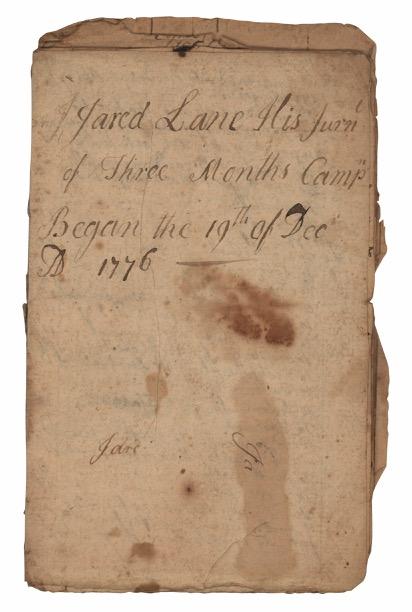 Jared Lane His Jurnl
of Three Months Campn
Began the 19th of Decr
AD 1776
Jare